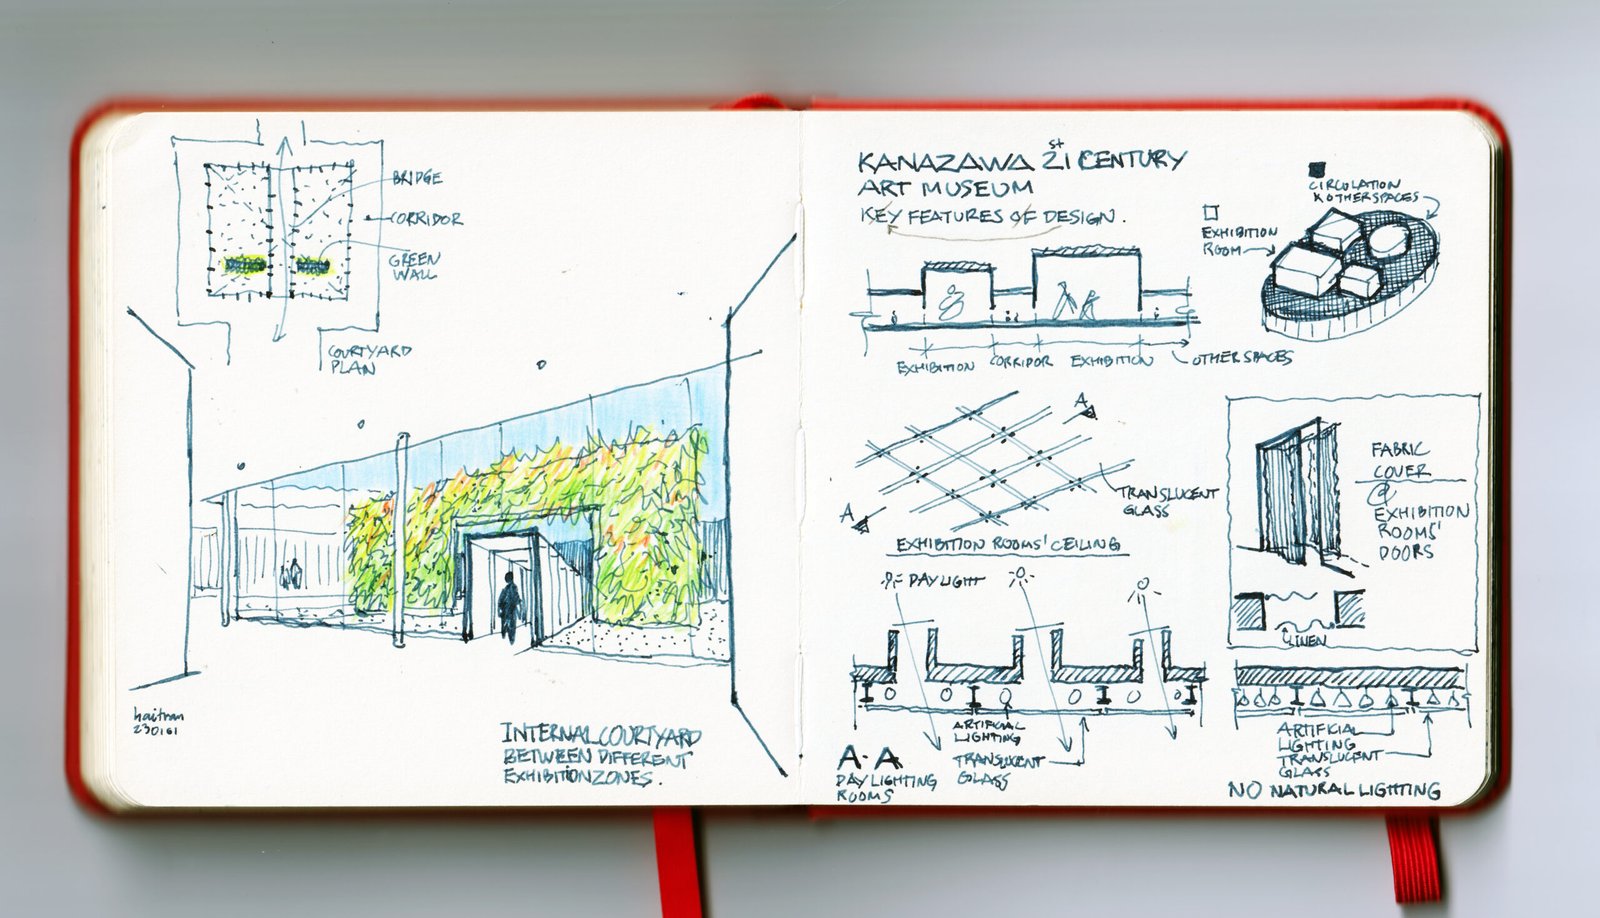 BRIDGE
CORRIDOR
GREEN
WALL
COURTYARD
PLAN
haitran
230161
INTERNAL COURTYARD
BETWEEN DIFFERENT
EXHIBITION ZONES.
KANAZAWA 21st CENTURY
ART MUSEUM
KEY FEATURES OF DESIGN.
CIRCULATION
& OTHER SPACES
EXHIBITION
ROOM
EXHIBITION CORRIDOR EXHIBITION OTHER SPACES
A
TRANSLUCENT
GLASS
A
EXHIBITION ROOMS' CEILING
FABRIC
COVER
@
EXHIBITION
ROOMS'
DOORS
LINEN
DAYLIGHT
ARTIFICIAL
LIGHTING
TRANSLUCENT
GLASS
A-A
DAYLIGHTING
ROOMS
ARTIFICIAL
LIGHTING
TRANSLUCENT
GLASS
NO NATURAL LIGHTING